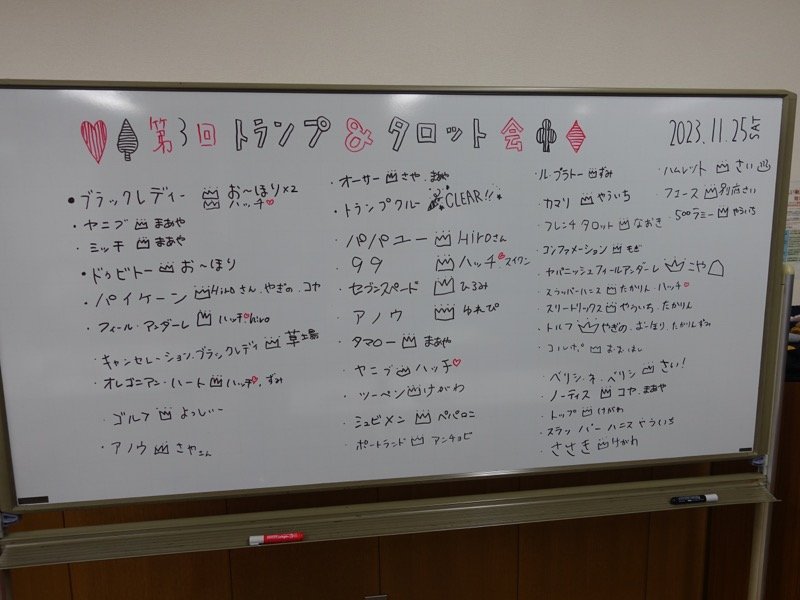 第3回 トランプ & タロット会
2023.11.25
・ブラックレディー お〜ほり×2
ハッチ♡
・ヤニブ まあや
・ミッチ まあや
・ドゥビトー お〜ほり
・パイケーン Hiroさん、やぎの、コヤ
・フィール・アンダーレ ハッチ♡ hiro
・キャンセレーション・ブラックレディ 草場
・オレゴニアン・ハート ハッチ♡、ずみ
・ゴルフ よっしー
・アノウ さやさん
・オーサー さや、まあや
・トランプクルー CLEAR!!
・パパユー Hiroさん
・99 ハッチ♡、スイワン
・セブンスペード ひろみ
・アノウ ゆれぴ
・タマロー まあや
・ヤニブ ハッチ♡
・ツーペン けがわ
・シュビメン ペパロニ
・ポートランド アンチョビ
・ル・プラトー ずみ
・カマリ やういち
・フレンチタロット なおき
・コンファメーション もぎ
・ヤパニッシュフィールアンダーレ こや
・スラッバーハニス たかりん、ハッチ♡
・スリートリックス やういち、たかりん
・トルフ やぎの、おーほり、たかりん、ずみ
・ベリシ・ネ・ベリシ さい!
・ノーティス コヤ、まあや
・トップ けがわ
・スラッバーハニス やういち
・ささき けがわ
・ハムレット さい
・フェース 別府さい
・500ラミー やういち